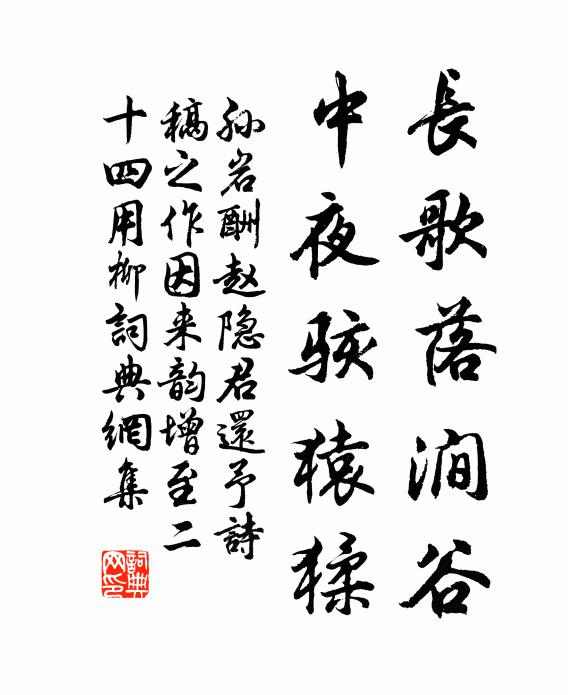 長歌落澗谷
中夜駭猿猱
孙岩酬赵隐君還予詩
稿之作因来韵增至二
十四用柳詞典網集
詞典
网印